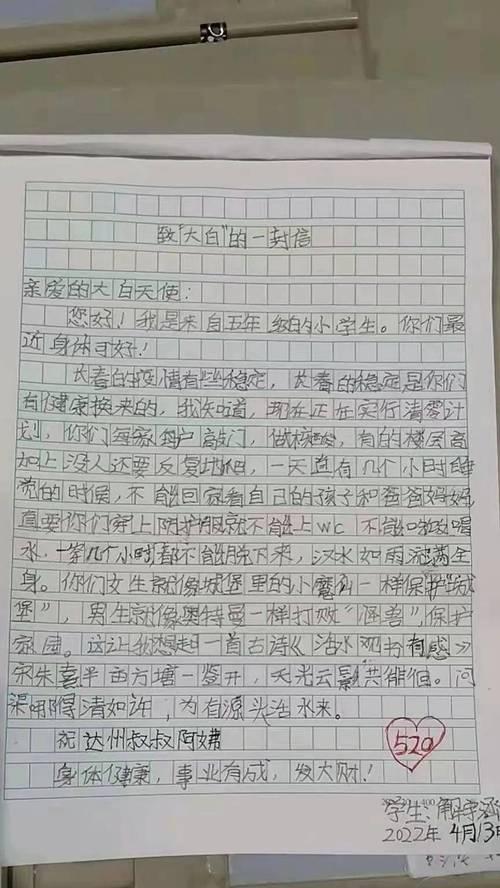 致“大白”的一封信
亲爱的大白天使：
您好！我是来自五年级的小学生。你们最
近身体可好！
长春的疫情有些稳定，长春的稳定是你们
有健康换来的，我知道，现在正在实行清零计
划，你们每家每户敲门，做核酸，有的楼层高
加上没人还要反复地，一天连有几个小时睡
觉的时侯，不能回家看自己的孩子和爸爸妈妈
直要你们穿上防护服就不能上wc不能吃饭喝
水，一穿几个小时都不能脱下来，汉水如雨流满全
身。你们女生就像城堡里的小魔仙一样保护“城
堡”，男生就像奥特曼一样打败“怪兽”，保护
家园。这让我想起一首古诗《活水观书有感》
宋朱喜半亩方塘一鉴开，天光云影共徘徊。问
渠哪得清如许，为有源头活水来。
祝达州叔叔阿姨
520
身体健康，事业有成，发大财！
学生：解宇涵
2022年4月13日